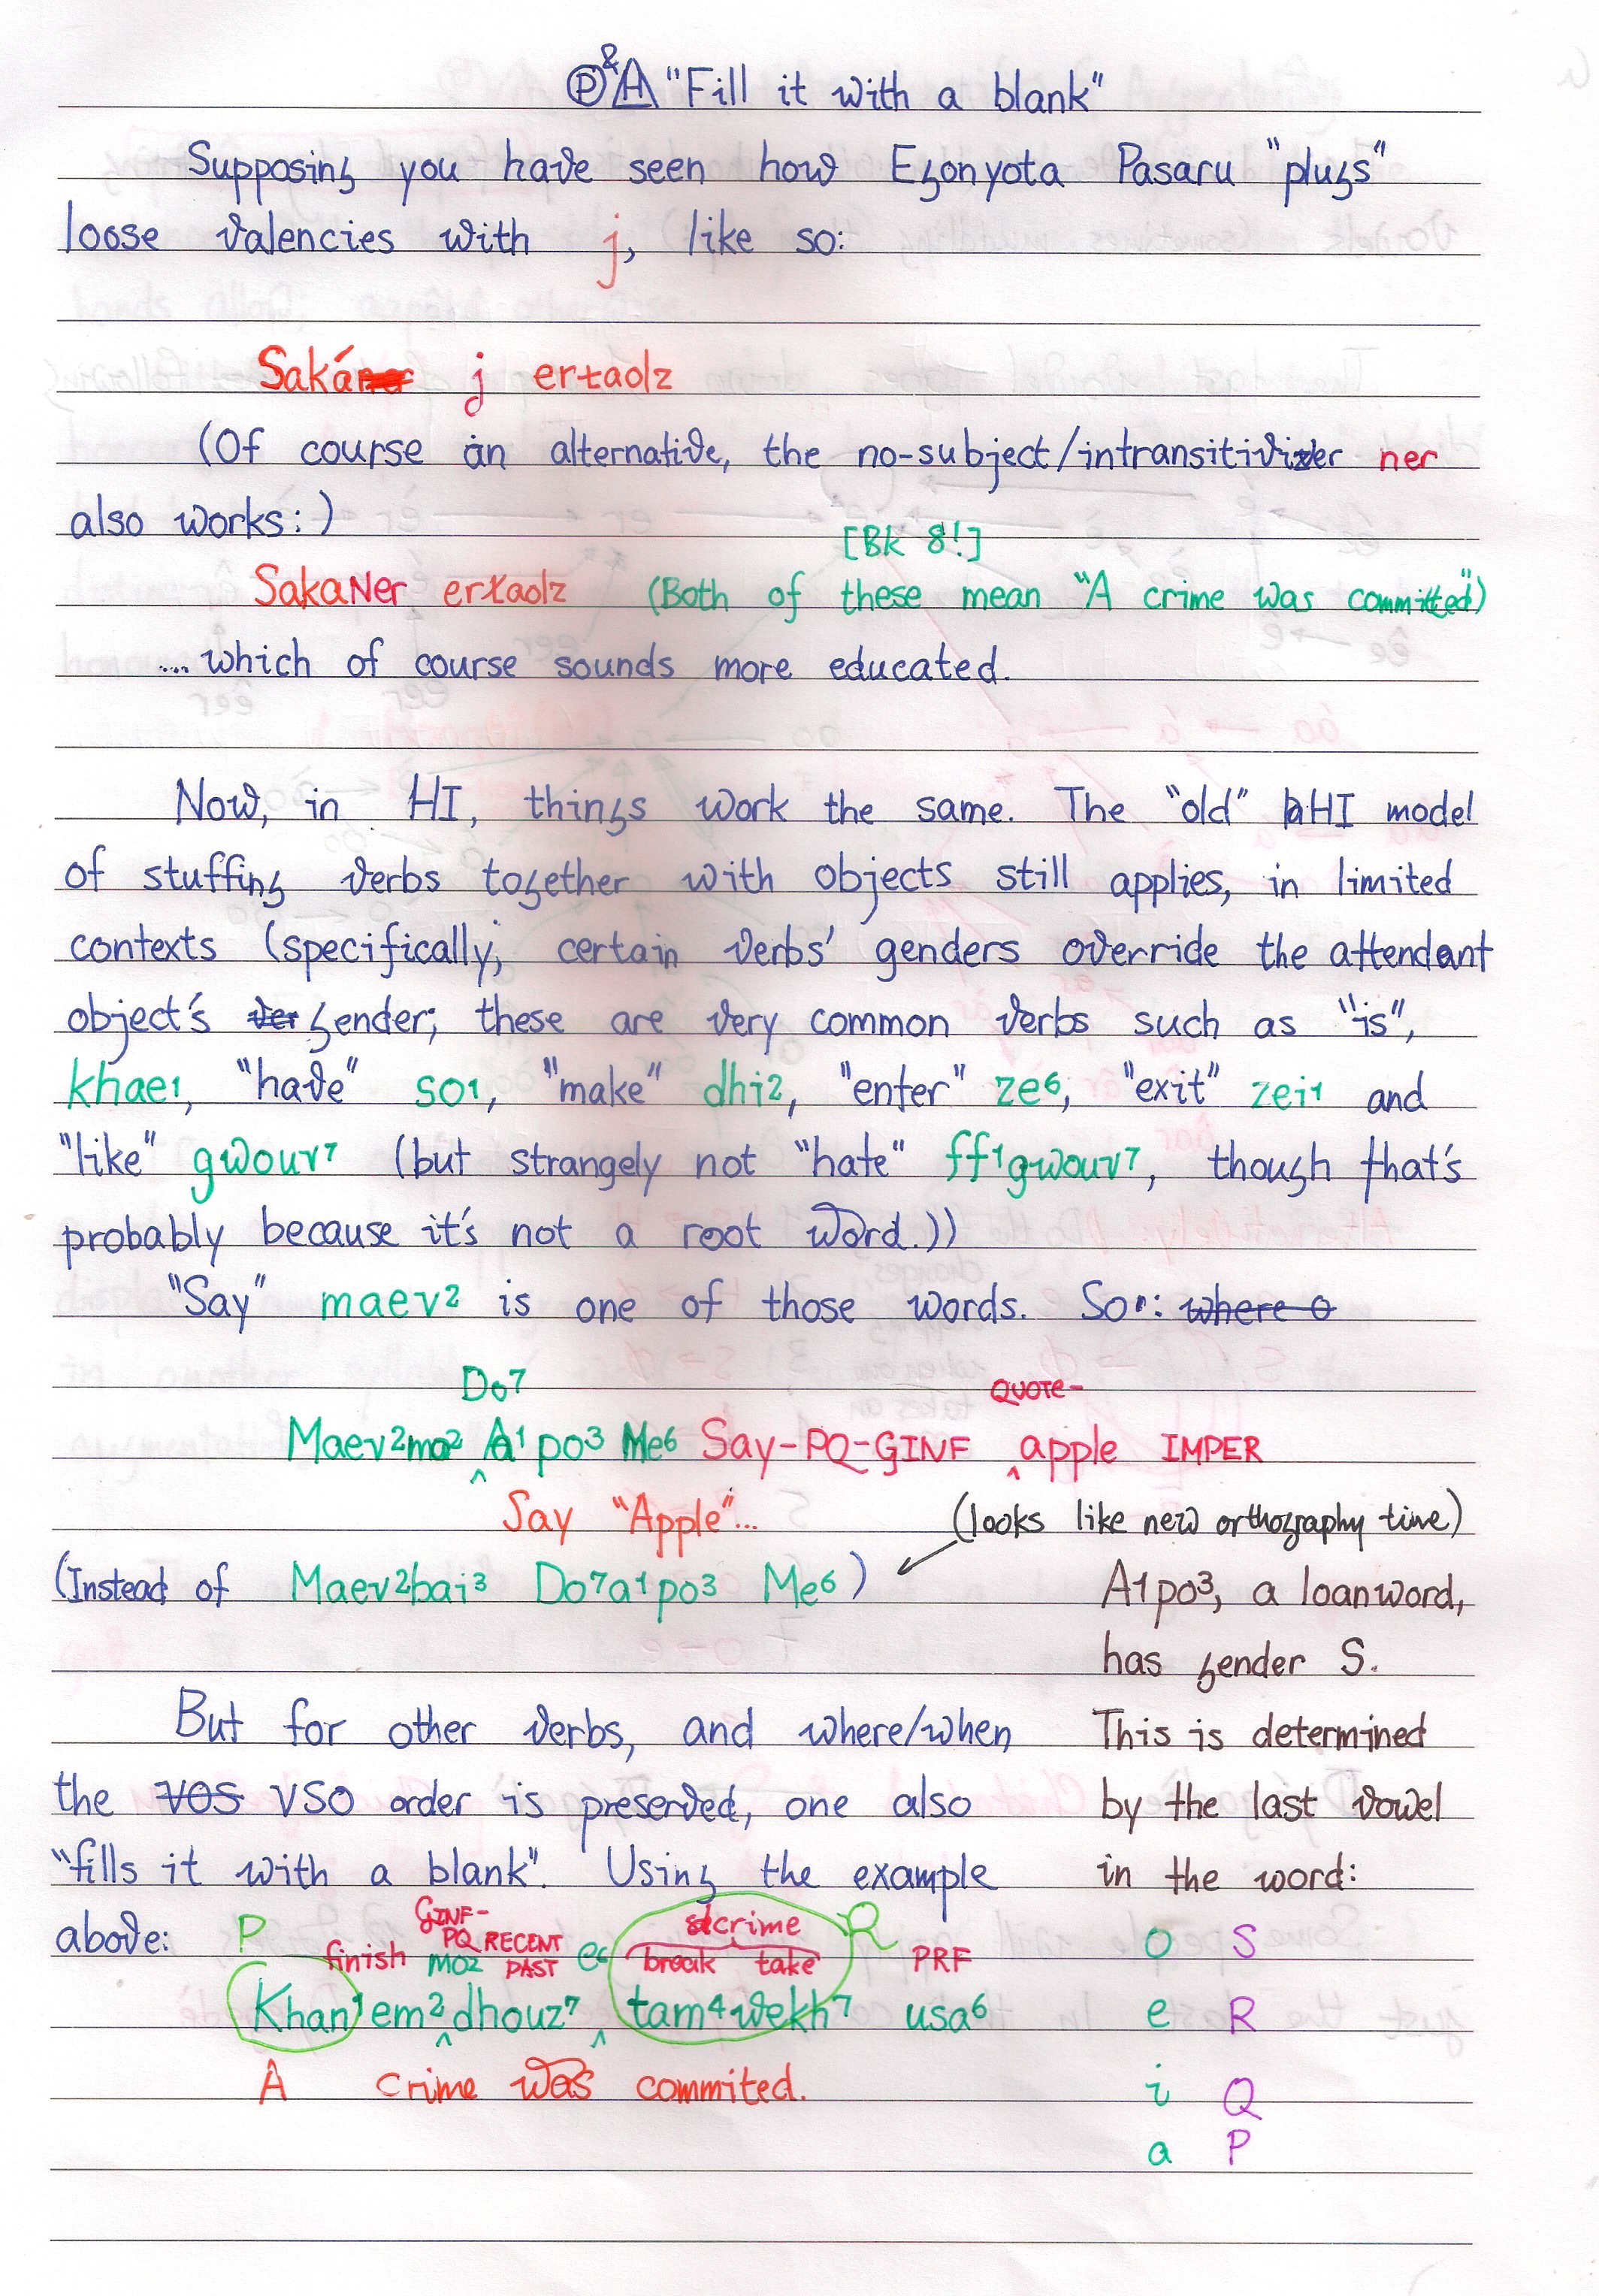 Ⓟ & A "Fill it with a blank"
Supposing you have seen how Egonyota Pasaru "plugs"
loose valencies with j, like so:
Saká j ertaolz
(Of course an alternative, the no-subject/intransitivizer ner
also works:)
[Bk 8!]
SakaNer ertaolz (Both of these mean "A crime was committed")
...which of course sounds more educated.
Now, in HI, things work the same. The "old" HI model
of stuffing verbs together with objects still applies, in limited
contexts (specifically, certain verbs' genders override the attendant
object's gender; these are very common verbs such as "is",
khae1, "have" so1, "make" dhi2, "enter" ze6, "exit" zei1 and
"like" gwouv7 (but strangely not "hate" ff1gwouv7, though that's
probably because it's not a root word.))
"Say" maev2 is one of those words. So: where o
Do7 QUOTE-
Maev2mo2 A1po3 Me6 Say-PQ-GINF apple IMPER
Say "Apple"...
(looks like new orthography time)
(Instead of Maev2bai3 Do7a1po3 Me6)
A1po3, a loanword,
has gender S.
This is determined
by the last vowel
in the word:
o S
e R
i Q
a P
But for other verbs, and where/when
the VOS VSO order is preserved, one also
"fills it with a blank". Using the example
above:
P GINF- crime R
finish PQ RECENT break take PRF
MO2 PAST
Khan1em2dhouz7 tam4wekh7 usa6
A crime was commited.